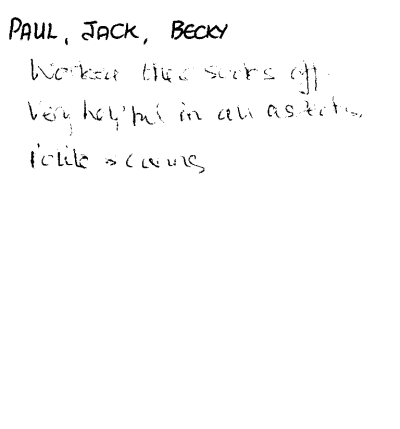 PAUL, JACK, BECKY
Worked their socks off.
Very helpful in all aspects.
Polite & caring